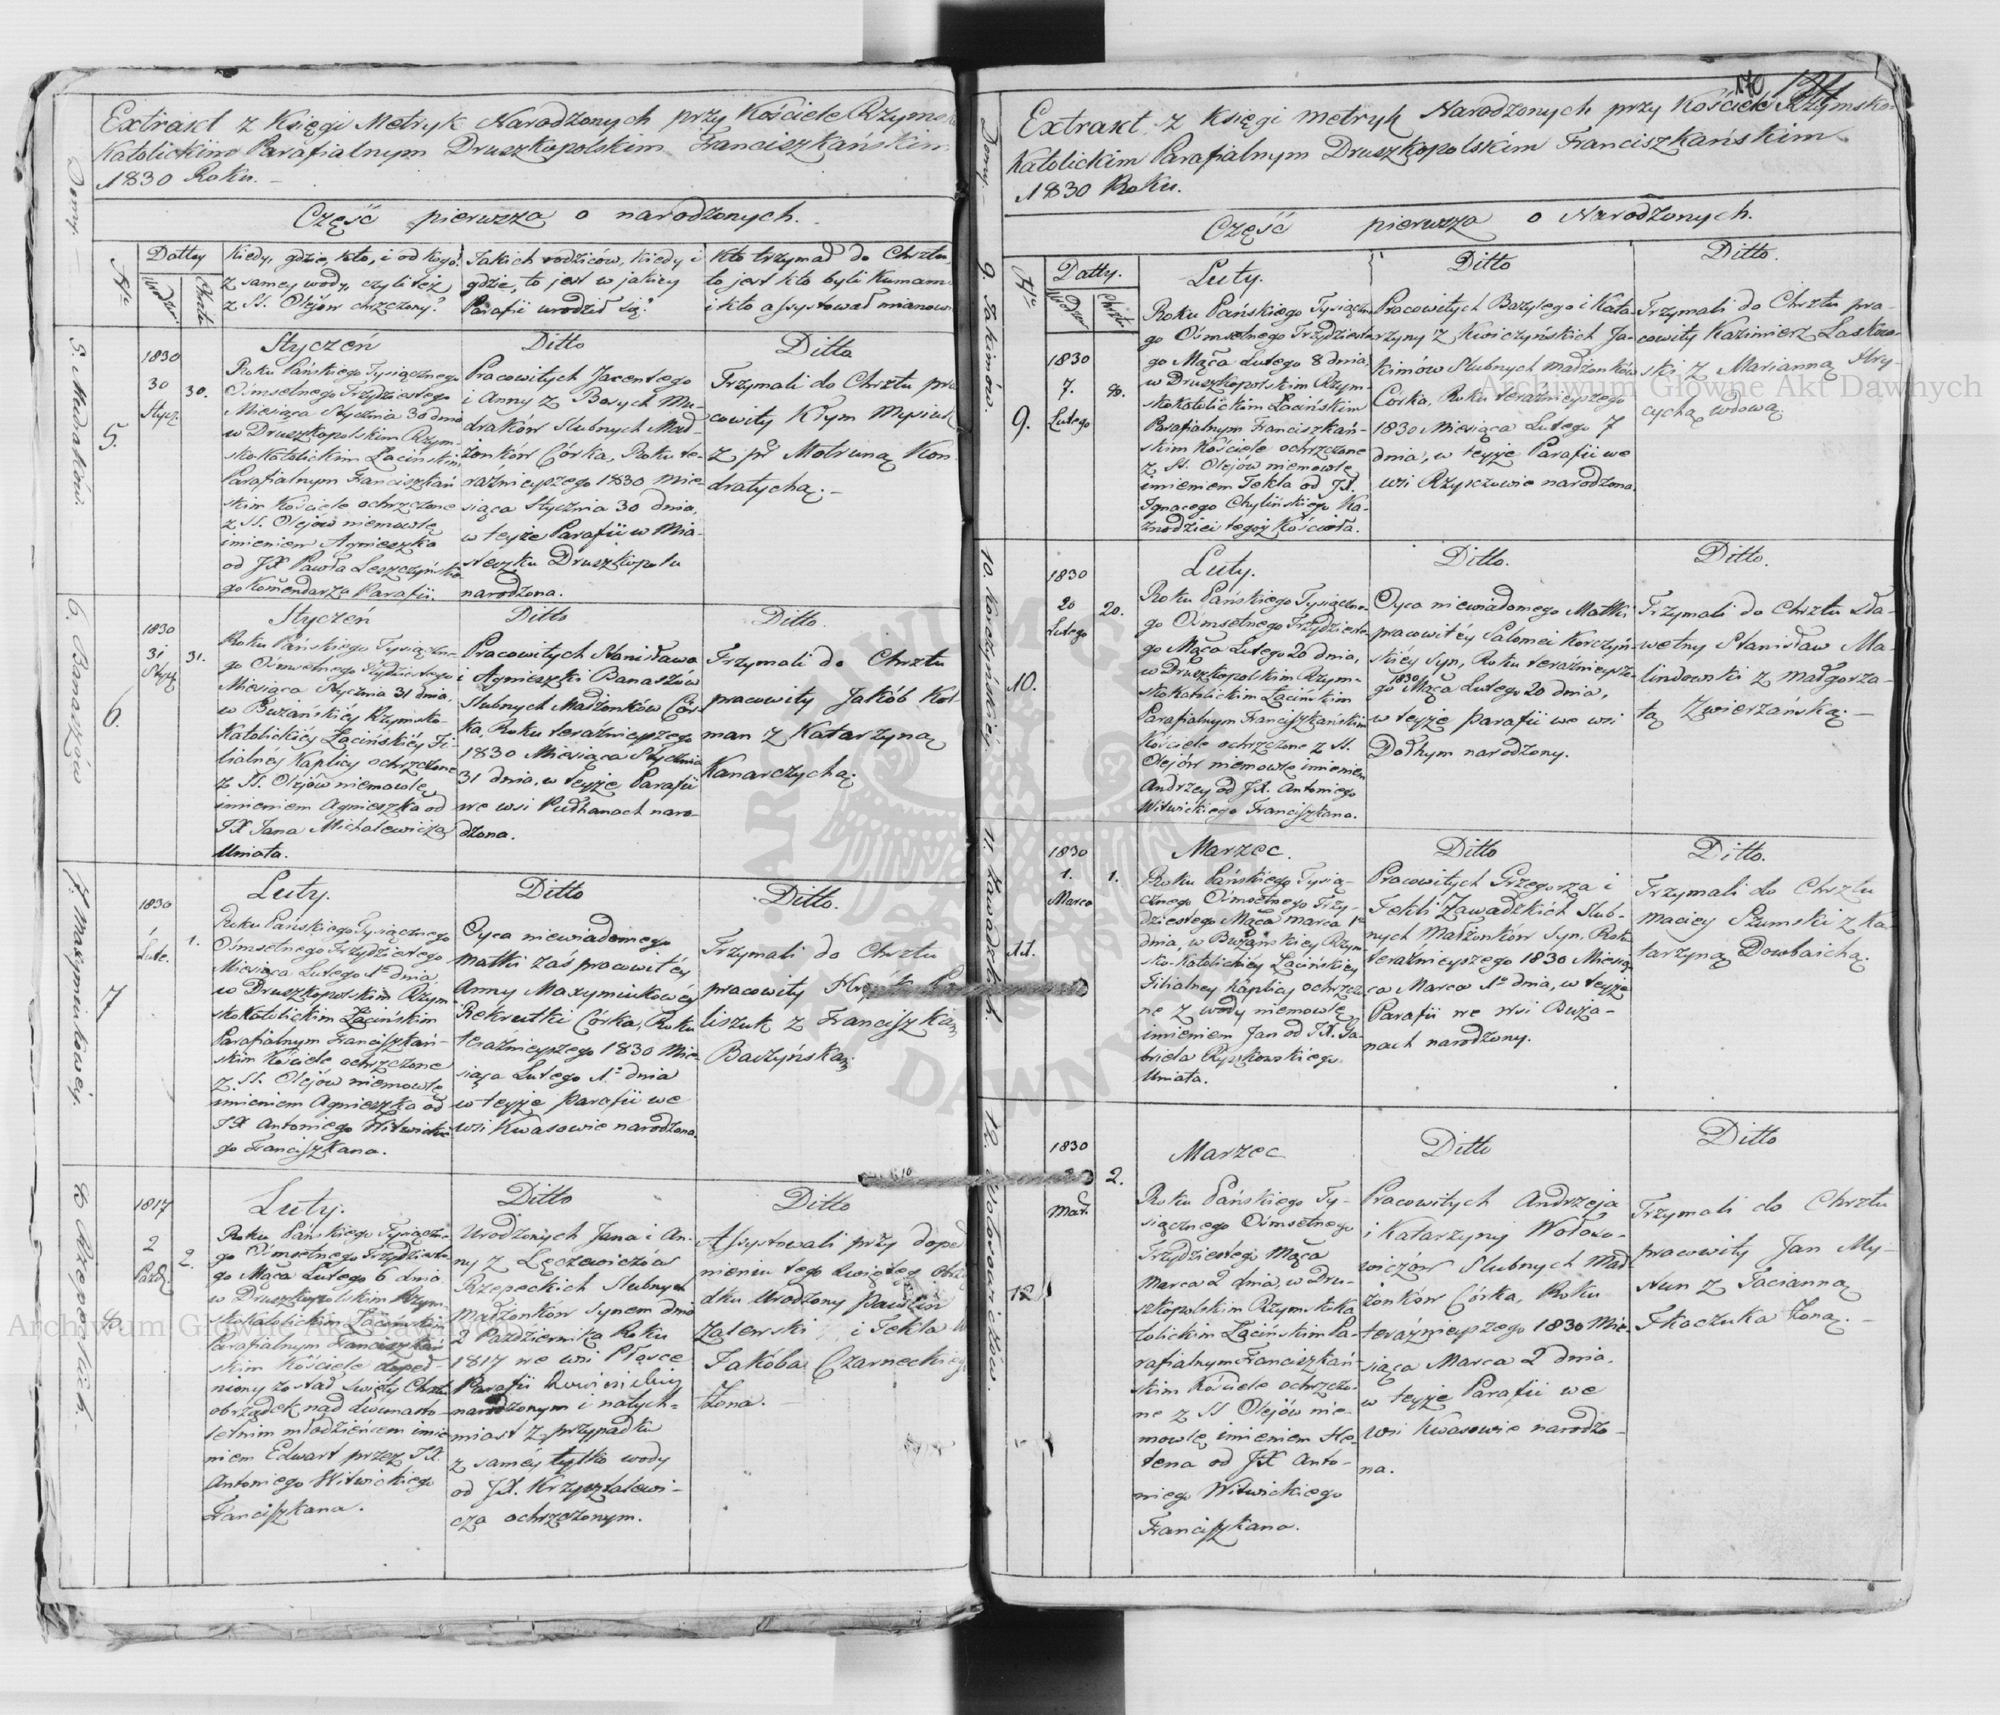 Extrakt z Księgi Metryk Narodzonych przy Kościele Rzymsko
Katolickim Parafialnym Druszkopolskim Franciszkańskim
1830 Roku.
Część pierwsza o narodzonych.
Domy.
Nro
Datty
Urodz.
Chrztu
Kiedy, gdzie, kto, i od kogo?
z samey wody, czyli też
z SS. Olejów chrzczony?
Jakich rodziców, kiedy i
gdzie, to jest w jakiey
Parafii urodził się?
Kto trzymał do Chrztu,
to jest kto byli Kumami
i kto assystował mianow
5. Mudraków.
5.
1830
30
Stycz.
30.
Styczeń
Roku Pańskiego Tysiącznego
Ośmsetnego Trzydziestego
Miesiąca Stycznia 30 dnia
w Druszkopolskim Rzym-
skoKatolickim Łacińskim
Parafialnym Franciszkań
skim Kościele ochrzczone
z SS. Olejów niemowlę
imieniem Agnieszka
od JX Pawła Leszczyńskie
go Komendarza Parafii.
Ditto
Pracowitych Jacentego
i Anny z Bosych Mu-
draków Slubnych Mał-
żonków Córka, Roku te-
raźnieyszego 1830 Mie-
siąca Stycznia 30 dnia,
w teyże Parafii w Mia-
steczku Druszkopolu
narodzona.
Ditto
Trzymali do Chrztu pra
cowity Klym Mysiuk
z Motruną Kon
dratychą.
6. Banaszów
6.
1830
31
Stycz
31.
Styczeń
Roku Pańskiego Tysiączne-
go Ośmsetnego Trzydziestego
Miesiąca Stycznia 31 dnia,
w Bużańskiéy Rzymsko-
Katolickiey Łacińskiéy Fi-
lialnéy Kaplicy ochrzczone
z SS. Olejów niemowlę
imieniem Agnieszka od
JX Jana Michalewicza
Uniata.
Ditto
Pracowitych Stanisława
i Agnieszki Banaszów
Slubnych Małżonków Cór
ka, Roku teraźnieyszego
1830 Miesiąca Stycznia
31 dnia, w teyże Parafii
we wsi Pudhanach naro-
dzona.
Ditto.
Trzymali do Chrztu
pracowity Jakób Kot
man z Katarzyną
Kanarczychą.
7. Maxymiukowej.
7
1830
1
Lute.
1.
Luty.
Roku Pańskiego Tysiącznego
Ośmsetnego Trzydziestego
Miesiąca Lutego 1o dnia
w Druszkopolskim Rzym
skoKatolickim Łacińskim
Parafialnym Franciszkań-
skim Kościele ochrzczone
z SS. Olejów niemowlę
imieniem Agnieszka od
JX Antoniego Witwickie
go Franciszkana.
Ditto
Oyca niewiadomego
Matki zaś pracowitéy
Anny Maxymiukowéy
Rekrutki Córka, Roku
teraźnieyszego 1830 Mie
siąca Lutego 1o dnia
w teyże Parafii we
wsi Kwasowie narodzona.
Ditto.
Trzymali do Chrztu
pracowity
liszuk z Franciszką
Baczyńską
8 Rzepeckich.
8.
1817
2
Paźd.
2.
Luty.
Roku Pańskiego Tysiączne
go Ośmsetnego Trzydzieste
go Mąca Lutego 6 dnia
w Druszkopolskim Rzym-
skoKatolickim Łacińskim
Parafialnym Franciszkań
skim Kościele dopeł-
niony został święty Chrztu
obrządek nad dwunasto-
letnim młodzieńcem imie
niem Edwart przez JX.
Antoniego Witwickiego
Franciszkana.
Ditto
Urodzonych Jana i An-
ny z Łęczewiczów
Rzepeckich Slubnych
Małżonków Synem dnia
2 Października Roku
1817 we wsi
Parafii
narodzonym i natych=
miast z przypadku
z saméy tylko wody
od JX. Krzysztalewi-
cza ochrzczonym.
Ditto
Assystowali przy dopeł
nieniu tego świętego obrzą
dku Urodzony Pawlin
Zalewski i Tekla
Jakóba Czarneckiego
Żona.
170
Extrakt z Księgi metryk Narodzonych przy Kościele Rzymsko
Katolickim Parafialnym Druszkopolskim Franciszkańskim
1830 Roku.
Część pierwsza o Narodzonych.
Domy.
Nro
Datty.
Urodzen
Chrztu
9. Jakimów.
9.
1830
7.
Lutego
8.
Luty.
Roku Pańskiego Tysiączne
go Ośmsetnego Trzydzieste
go Mąca Lutego 8 dnia,
w Druszkopolskim Rzym-
skokatolickim Łacińskim
Parafialnym Franciszkań-
skim Kościele ochrzczone
z SS. Olejów niemowlę
imieniem Tekla od JX.
Ignacego Chylińskiego Ka-
znodziei tegoż Kościoła.
Ditto
Pracowitych Bazylego i Kata-
rzyny z Kwiczyńskich Ja-
kimów Slubnych małżonków
Corka, Roku teraźnieyszego
1830 Miesiąca Lutego 7
dnia, w teyże Parafii we
wsi Rzyszczowie narodzona.
Ditto.
Trzymali do Chrztu pra-
cowity Kazimierz Lasko-
ski z Marianną Hry-
cychą wdową
10. Korczyńskiéj
10.
1830
20
Lutego
20.
Luty.
Roku Pańskiego Tysiączne-
go Ośmsetnego Trzydzieste-
go Mąca Lutego 20 dnia,
w Druszkopolskim Rzym-
skoKatolickim Łacińskim
Parafialnym Franciszkańskim
Kościele ochrzczone z SS.
Olejów niemowlę imieniem
Andrzey od JX. Antoniego
Witwickiego Franciszkana.
Ditto.
Oyca niewiadomego Matki
pracowitéy Salomei Korczyń
skiéy Syn, Roku teraźnieysze-
go 1830 Mąca Lutego 20 dnia,
w teyże parafii we wsi
Dołhym narodzony.
Ditto.
Trzymali do Chrztu Sła-
wetny Stanisław Ma-
linowski z małgorza-
tą Zwierzańską.
11. Zawadzkich.
11.
1830
1.
Marca
1.
Marzec.
Roku Pańskiego Tysią-
cznego Ośmsetnego Trzy-
dziestego Mąca marca 1o
dnia, w Bużańskiey Rzym-
sko-Katolickiéy Łacińskiey
Filialney Kaplicy ochrzczo
ne z wody niemowlę
imieniem Jan od JX. Ga-
briela Ryszkowskiego
Uniata.
Ditto
Pracowitych Grzegorza i
Tekli Zawadzkich Slub-
nych Małżonków Syn, Roku
teraźnieyszego 1830 Miesią-
ca Marca 1o dnia, w teyże
Parafii we Wsi Buża-
nach narodzony.
Ditto.
Trzymali do Chrztu
maciey Szumski z Ka-
tarzyną Dowbaichą.
12. Wołosowiczów.
12
1830
2
Mar.
2.
Marzec
Roku Pańskiego Ty-
siącznego Ośmsetnego
Trzydziestego Mąca
Marca 2 dnia, w Dru-
szkopolskim RzymskoKa
tolickim Łacińskim Pa-
rafialnym Franciszkań-
skim Kościele ochrzczo-
ne z SS Olejów nie-
mowlę imieniem He-
lena od JX Anto-
niego Witwickiego
Franciszkana.
Ditto
Pracowitych Andrzeja
i Katarzyny Wołoso-
wiczów Slubnych Mał
żonków Córka, Roku
teraźnieyszego 1830 Mie-
siąca Marca 2 dnia,
w teyże Parafii we
Wsi Kwasowie narodzo-
na.
Ditto
Trzymali do Chrztu
pracowity Jan My-
stun z Tacianną
Tkaczuka Żoną.
Archiwum Główne Akt Dawnych
Archiwum Główne Akt Dawnych